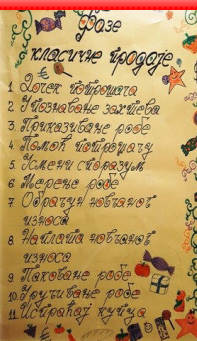 Фазе
класичне продаје
1. Дочек потрошача
2. Упознавање захтева
3. Приказивање робе
4. Помоћ потрошачу
5. Усмени споразум
6. Мерење робе
7. Обрачун новчаног
износа
8. Наплата новчаног
износа
9. Паковање робе
10. Уручивање робе
11. Испраћај купца